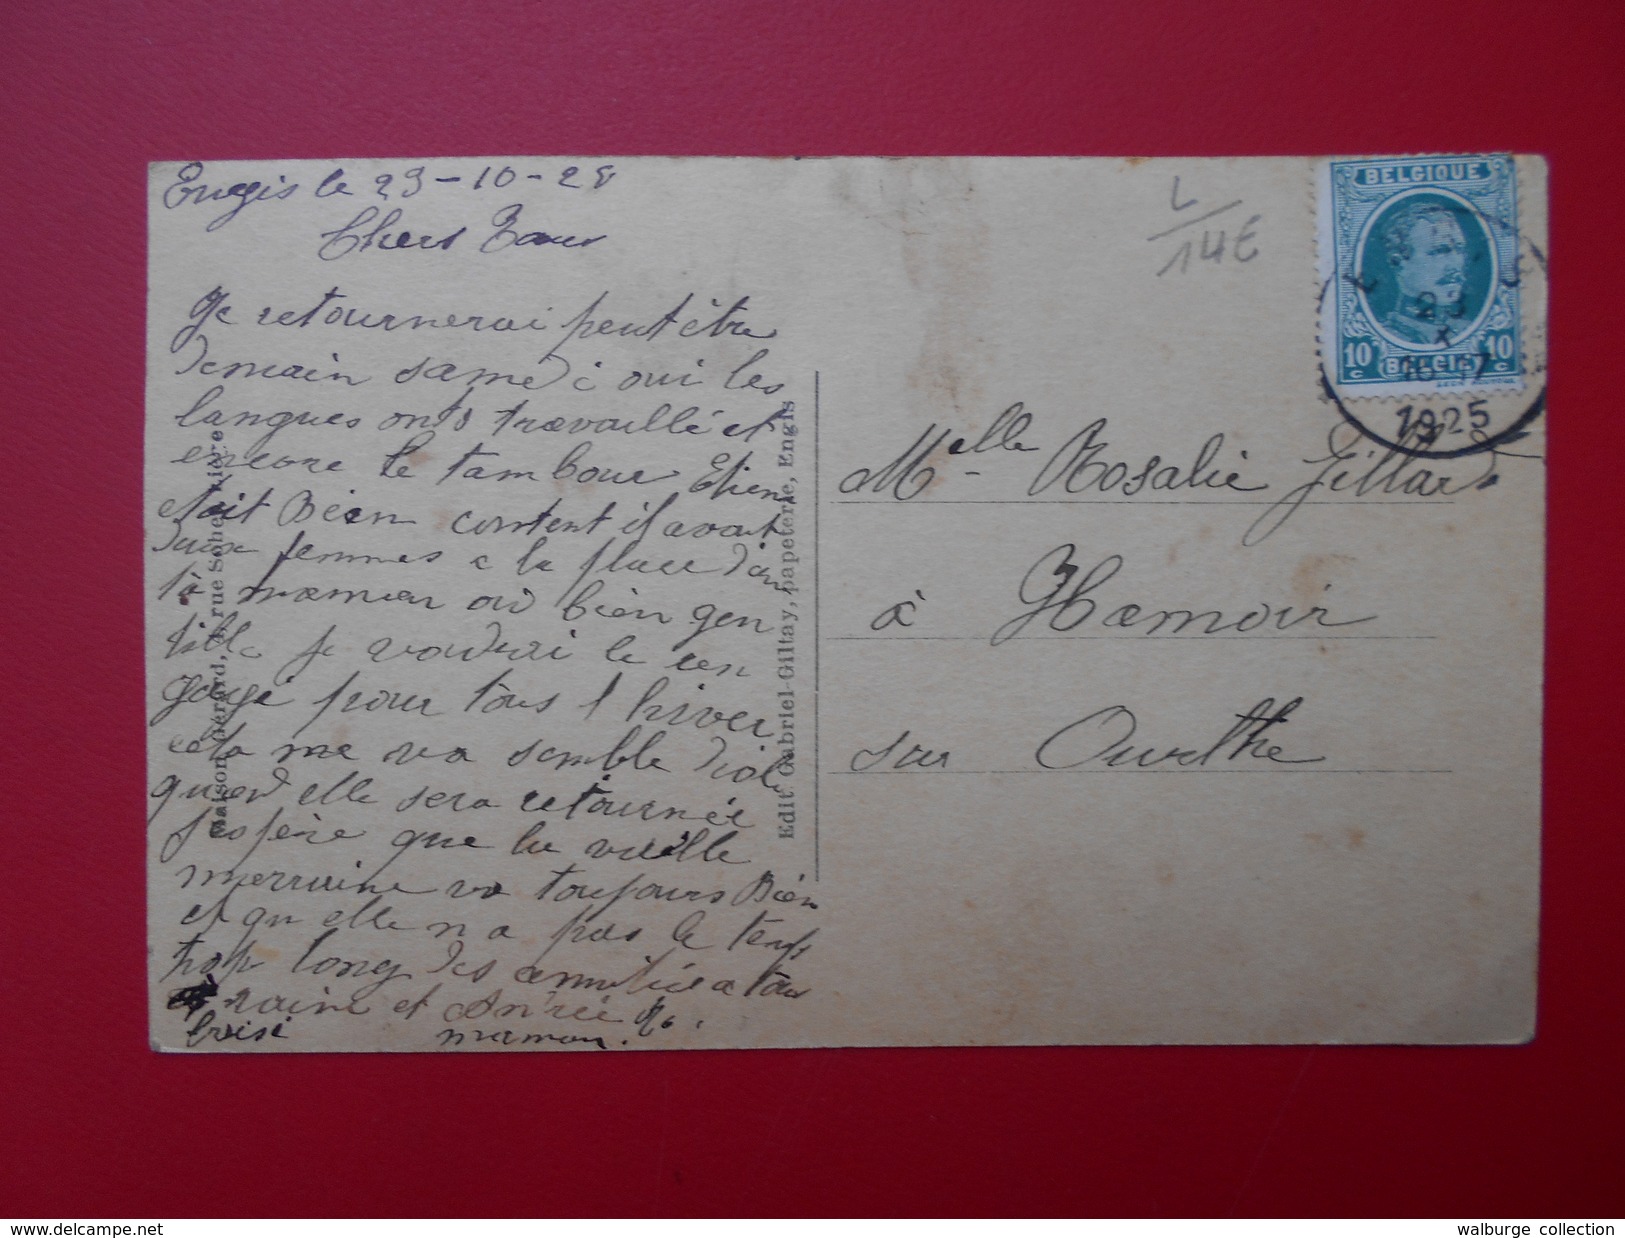 Engis le 23-10-25
Chers Tous
Je retournerai peut être
demain samedi oui les
langues onts travaillé et
encore le tambour Etienne
etait Bien content il avait
deux femmes a la place d'un
là maman où bien gen
tille je voudrai le
pour tous l hiver
cela me va semble
quand elle sera retournée
j'espère que la vieille
marraine va toujours Bien
et qu elle n a pas le temps
trop long des amitiée a tous
raine et Andrée
maman.
L/14€
BELGIQUE
10c BELGIE 10c
ENGIS
23
X
16-17
1925
Melle Rosalie Gillard
à Hamoir
sur Ourthe
Edit. Gabriel-Giltay, papeterie, Engis
walburge collection